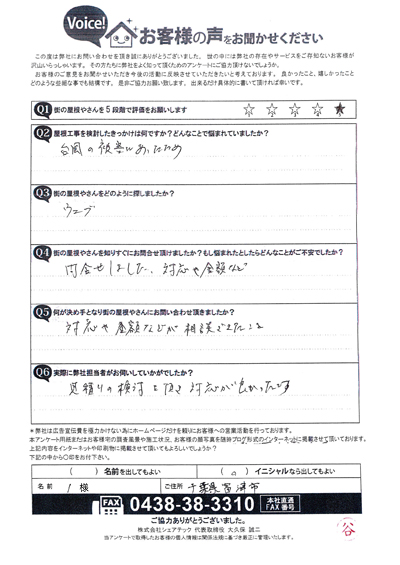 Voice!
お客様の声をお聞かせください
この度は弊社にお問い合わせを頂き誠にありがとうございました。世の中には弊社の存在やサービスをご存知ないお客様が
沢山いらっしゃいます。その方たちに弊社をよく知って頂くためのアンケートにご協力頂けないでしょうか。
お客様のご意見をお聞かせいただき今後の活動に反映させていただきたいと考えております。良かったこと、嬉しかったこと
どのような些細な事でも結構です。是非ご協力お願い致します。出来るだけ具体的に書いて頂ければ幸いです。
Q1 街の屋根やさんを5段階で評価をお願いします ☆ ☆ ☆ ☆ ★
Q2 屋根工事を検討したきっかけは何ですか？どんなことで悩まれていましたか？
台風の被害にあったため
Q3 街の屋根やさんをどのように探しましたか？
ウェブ
Q4 街の屋根やさんを知りすぐにお問合せ頂けましたか？もし悩まれたとしたらどんなことがご不安でしたか？
問合せしました、対応や金額など
Q5 何が決め手となり街の屋根やさんにお問い合わせ頂きましたか？
対応や金額などが相談できたこと
Q6 実際に弊社担当者がお伺いしていかがでしたか？
見積りの検討を頂き 対応が良かったです
＊弊社は広告宣伝費を極力かけない為にホームページだけを頼りにお客様への営業活動を行っております。
本アンケート用紙またはお客様宅の調査風景や施工状況、お客様の顔写真を随時ブログ形式のインターネットに掲載させて頂いております。
上記内容をインターネットや印刷物に掲載させて頂いてもよろしいでしょうか？
下記の中から○印をお付下さい。
（ ）名前を出してもよい （○）イニシャルなら出してもよい
名前 I 様 ご住所 千葉県富津市
FAX 0438-38-3310 本社直通 FAX番号
ご協力ありがとうございました。
株式会社シェアテック 代表取締役 大久保 誠二
当アンケートで取得したお客様の個人情報は関係法規に基づき厳正に管理いたします。
谷